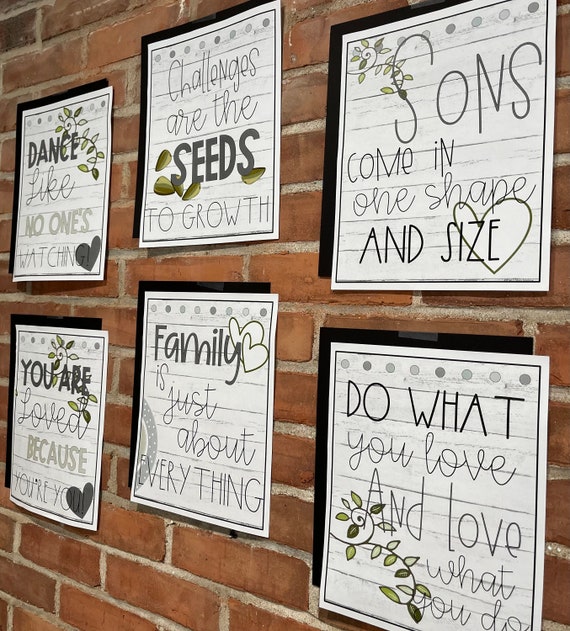 DANCE
Like
NO ONE'S
WATCHING!
Challenges
are the
SEEDS
TO GROWTH
SONS
COME IN
one shape
AND SIZE
YOU ARE
Loved
BECAUSE
YOU'RE YOU
Family
is
just
about
EVERYTHING
DO WHAT
you love
And LOVE
what
you do